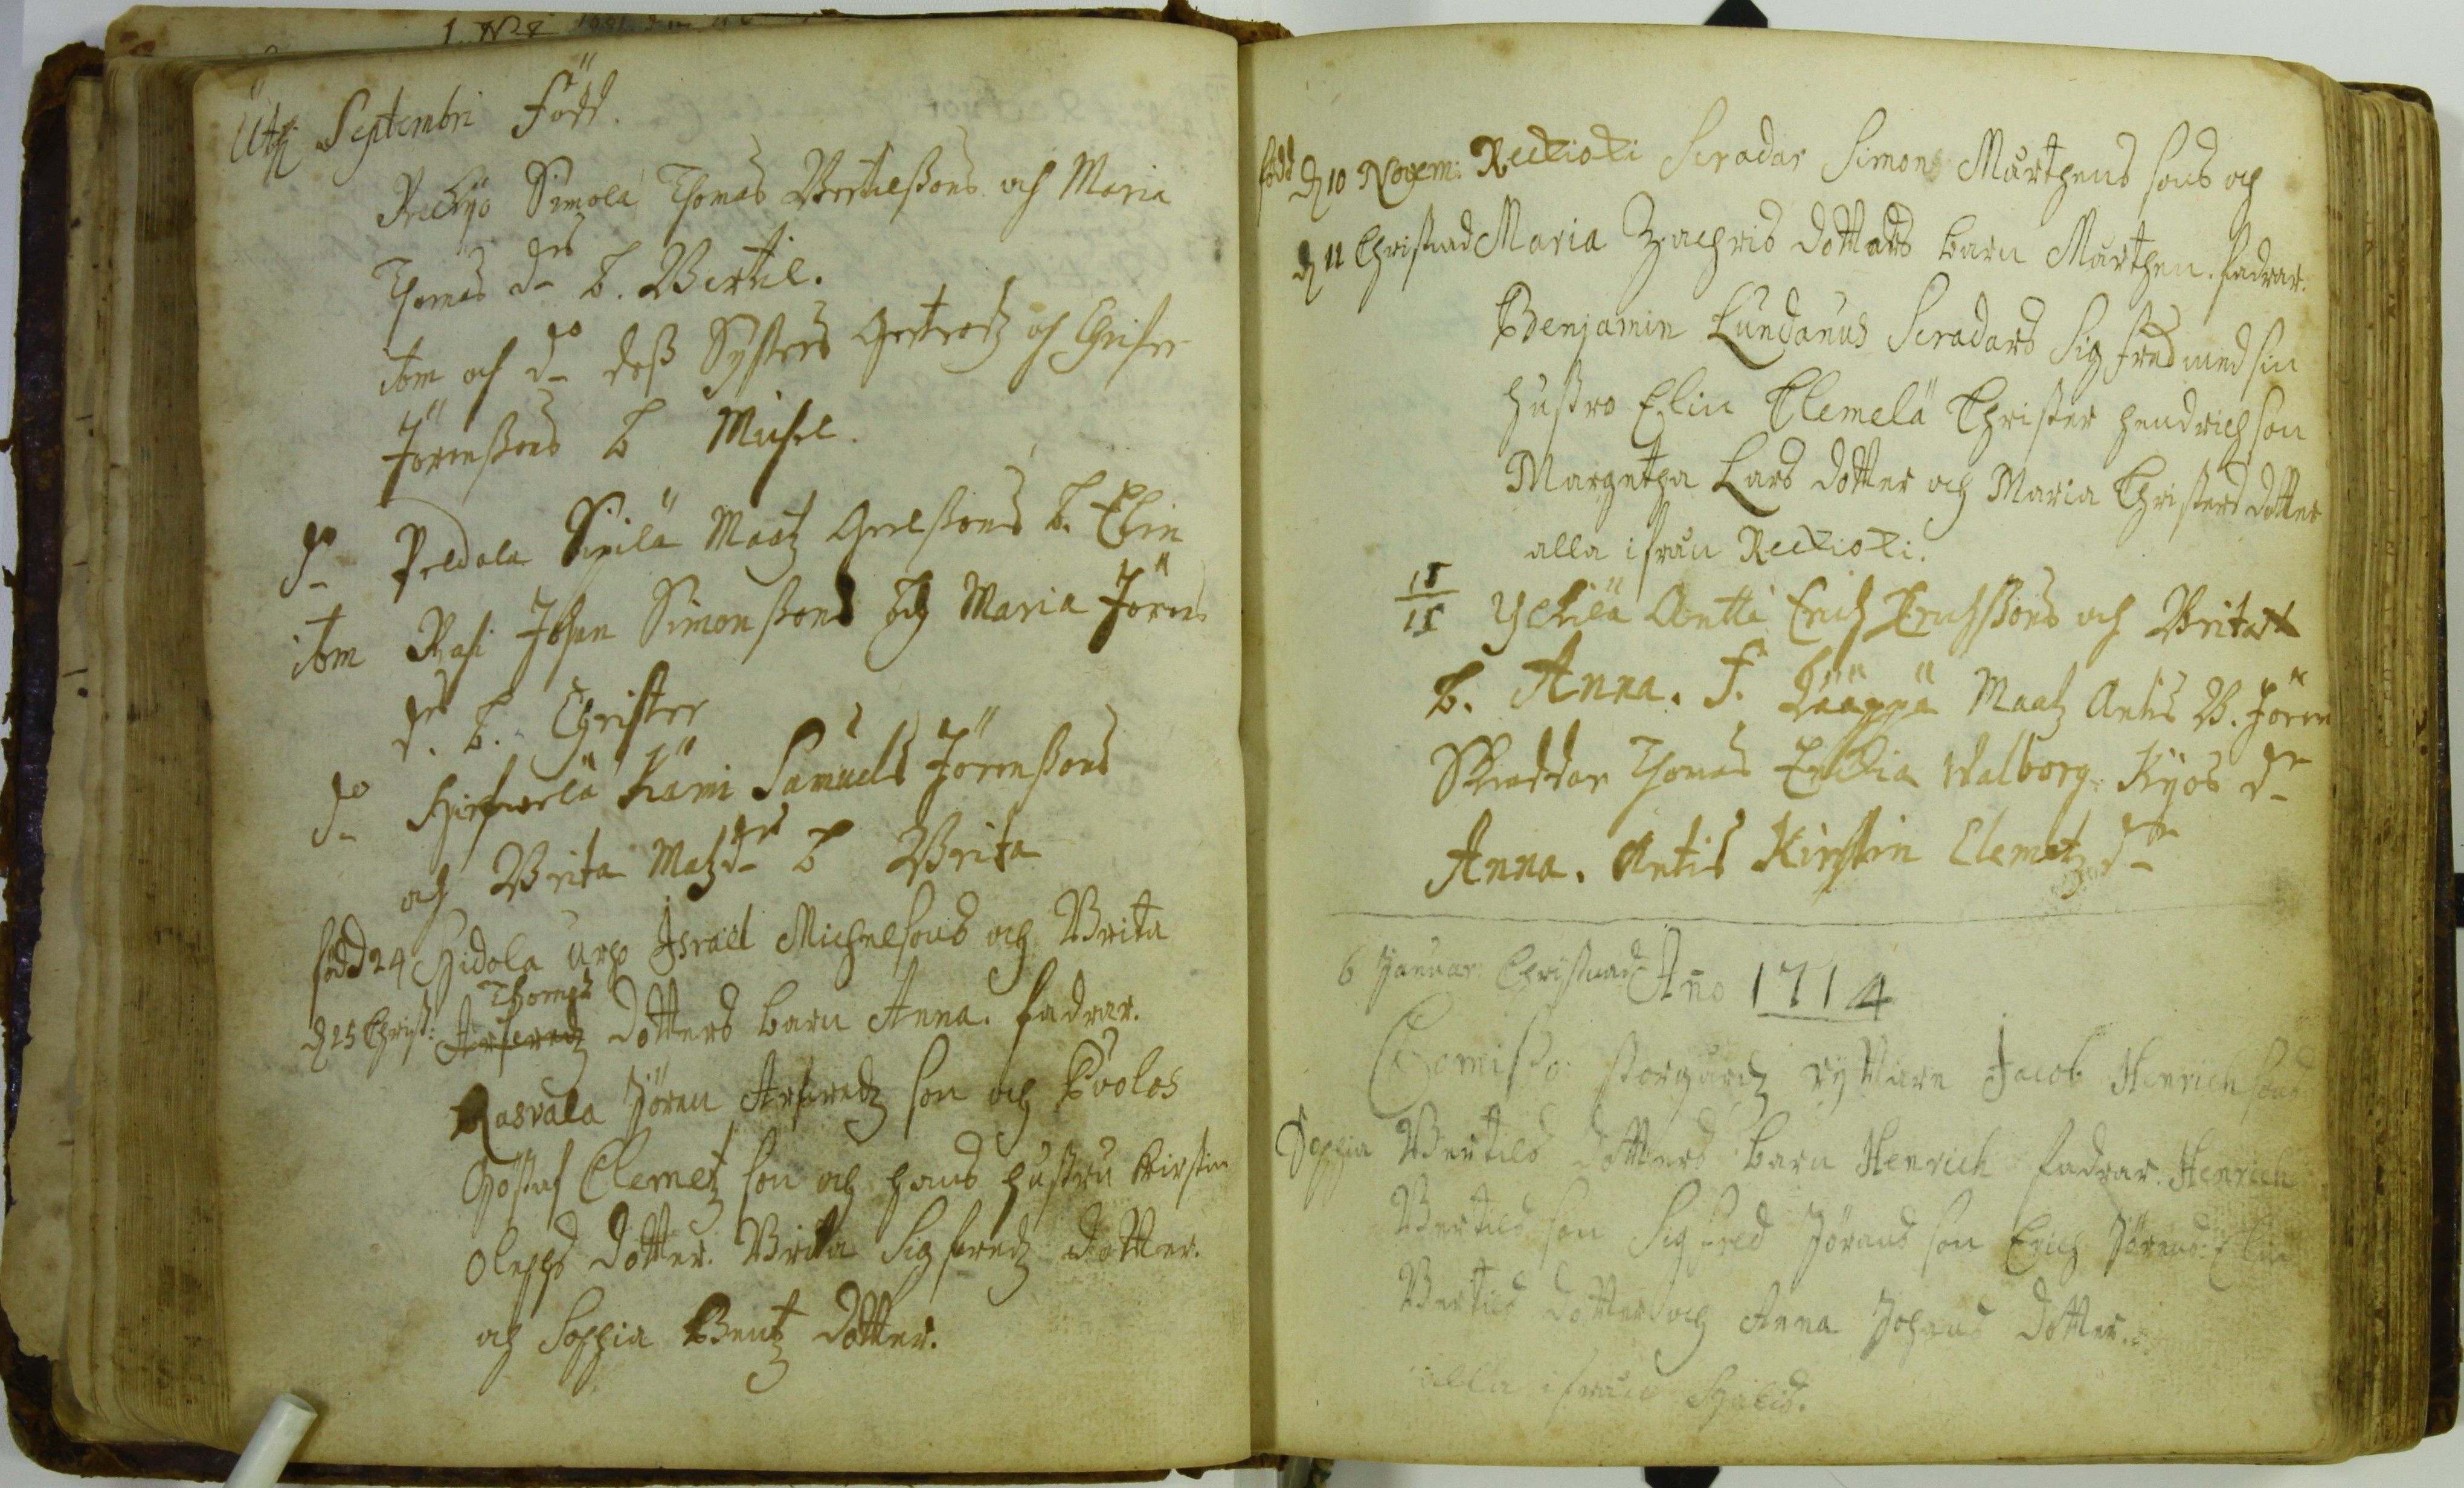 Septembri Född.
Simola Thomas Bertilßons och Maria
Thomas drs b. Bertil.
item och do deß Systers och Christer
Jörenßons b Michel.
do Peldola Sipilä Maatz b. Elin
itm Pasi Johan Simonßons och Maria Jörens
dr. b. Christer
do Kämi Samuels Jörenßons
och Brita Matz drs b Brita
född 24 Hidola urp Israel Michelsons och Brita
Thomas
d 25 Christ: Arfredz dotters barn Anna. fadrar.
Rasvala Jören Arfredz son och Pvolas
Göstaf Clemetz son och hans hustru Kirstin
Olephs dotter. Brita Sigfredz dotter.
och Sophia Bentz dotter.
född d 10 Novem: Reckioki Scradar Simon Mårthens sons och
d 11 Christnad Maria Zachris dotters barn Mårthen. fadrar.
Benjamin Lundanus Scradars Sigfred med sin
hustro Elin Clemelä Christer Hendrichson
Margretha Lars dotter och Maria Christers dotter
alla ifrån Reckioki.
15
11 Antti Erich Erichssons och Brita
b. Anna. F. Maatz Antis B. Jören
Skraddar Thomas Walborg. Kÿos dr
Anna. Antis Kirstin Clemetz dr
6 Januar: Christnad Año 1714
storgårdz ryttare Jacob Henrichsons
Sophia Bertils dotters barn Henrich fadrar. Henrich
Bertils son Sigfred Jörans son Erich Jörans: Elin
Bertils dotter och Anna Johans dotter.
alla ifrån